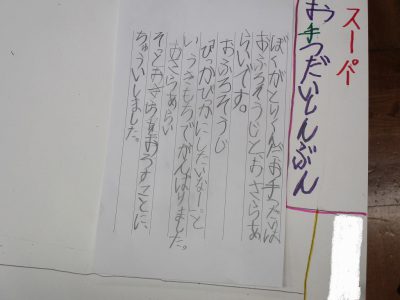 スーパー
お手つだいしんぶん
ぼくがとりくんだお手つだいは
おふろそうじとおさらあ
らいです。
おふろそうじ
ぴっかぴかにしたいなーと
いうきもちでがんばりました。
おさらあらい
そっとおさらをおろすことに
ちゅういしました。